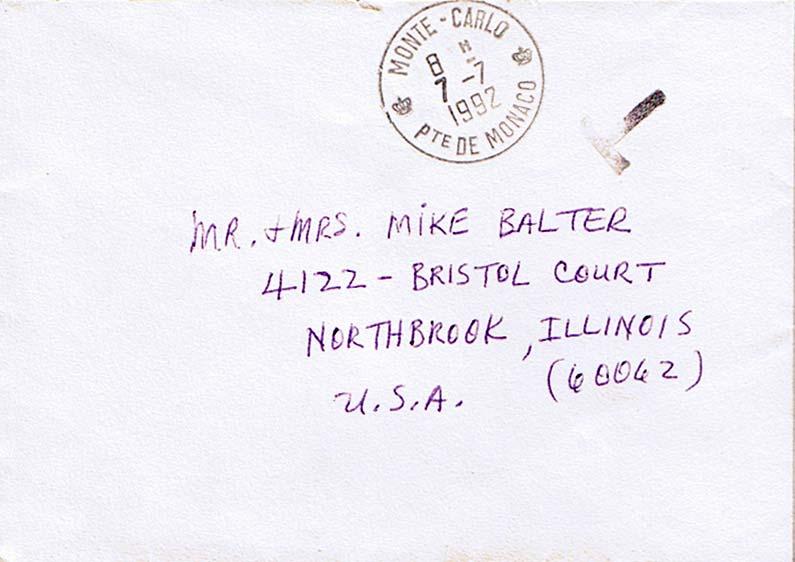 MONTE-CARLO
8 H
7-7
1992
PTE DE MONACO
MR. + MRS. MIKE BALTER
4122 - BRISTOL COURT
NORTHBROOK, ILLINOIS
(60062)
U.S.A.